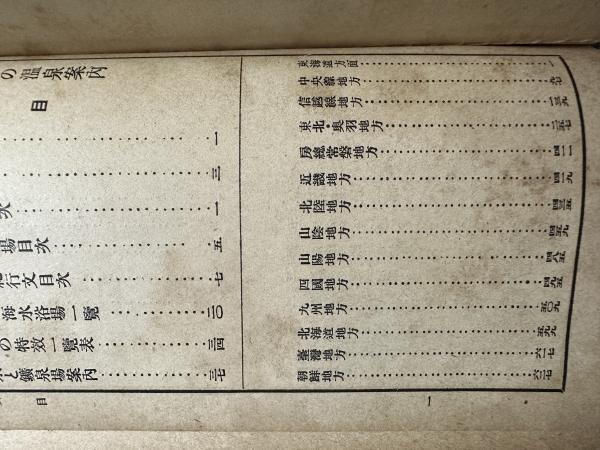 の温泉案内
目
一
三
次 一
場目次 五
行文目次 七
海水浴場一覧 二〇
の特效一覧表 三四
と鑛泉場案内 三七
目
東海道方面 一
中央線地方 九七
信越線地方 一三九
東北・奥羽地方
房總常磐地方 四一一
近畿地方 四一九
北陸地方 四三五
山陰地方 四五九
山陽地方 四八五
四國地方 四九五
九州地方 五〇九
北海道地方 五九五
臺灣地方 六一七
朝鮮地方 六二七
一